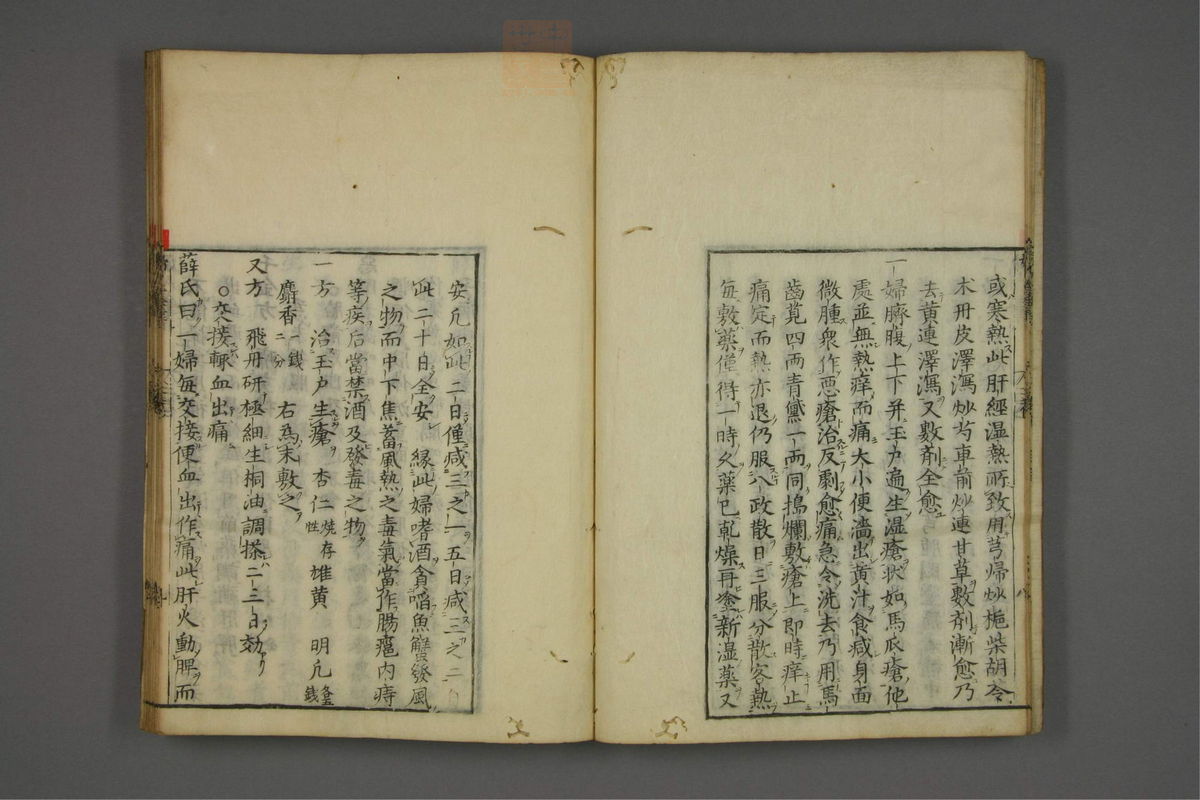 或寒熱此肝經湿熱所致用芎歸炒梔柴胡苓
朮丹皮澤瀉炒芍車前炒連甘草數剤漸愈乃
去黄連澤瀉又數剤全愈
一婦臍腹上下并玉户遍生湿瘡状如馬瓜瘡他
處並無熱痒而痛大小便濇出黄汁食减身面
微腫衆作悪瘡治反劇愈痛急令洗去乃用馬
齒莧四兩青黛一兩同搗爛敷瘡上即時痒止
痛定而熱亦退仍服八政散日三服分散客熱
毎敷薬僅得一時久薬已乾燥再塗新湿薬又
安凢如此二日僅减三之一五日减三之二自
此二十日全安　縁此婦嗜酒貪㗖魚蟹發風
之物而中下焦蓄風熱之毒氣當作腸癰内痔
等疾后當禁酒及發毒之物
一方　治玉户生瘡　杏仁燒存性　雄黄　明凢各五錢
麝香二分　右為末敷之
又方　飛丹研極細生桐油調搽二三日効
○交接輙血出痛
薛氏曰一婦毎交接便血出作痛此肝火動脾而